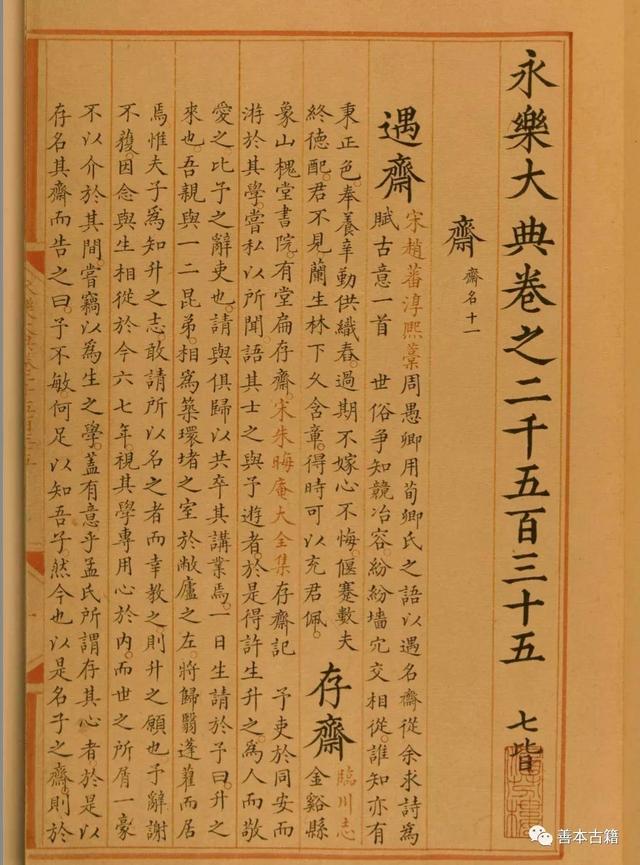 永樂大典卷之二千五百三十五 七皆
齋 齋名十一
遇齋
宋趙蕃淳熙藁周愚卿用荀卿氏之語以遇名齋從余求詩為
賦古意一首 世俗爭知競冶容紛紛墻宂交相從誰知亦有
秉正色奉養辛勤供織舂過期不嫁心不悔偃蹇數夫
終德配君不見蘭生林下乆含章得時可以充君佩
存齋
臨川志
金谿縣
象山槐堂書院有堂扁存齋宋朱晦庵大全集存齋記 予吏於同安而
游於其學嘗私以所聞語其士之與予遊者於是得許生升之為人而敬
愛之比予之辭吏也請與俱歸以共卒其講業焉一日生請於予曰升之
來也吾親與一二昆弟相為築環堵之室於敝廬之左將歸翳蓬藋而居
焉惟夫子為知升之志敢請所以名之者而幸教之則升之願也予辭謝
不獲因念與生相從於今六七年視其學專用心於內而世之所屑一豪
不以介於其間嘗竊以為生之學蓋有意乎孟氏所謂存其心者於是以
存名其齋而告之曰予不敏何足以知吾子然今也以是名子之齋則於
善本古籍